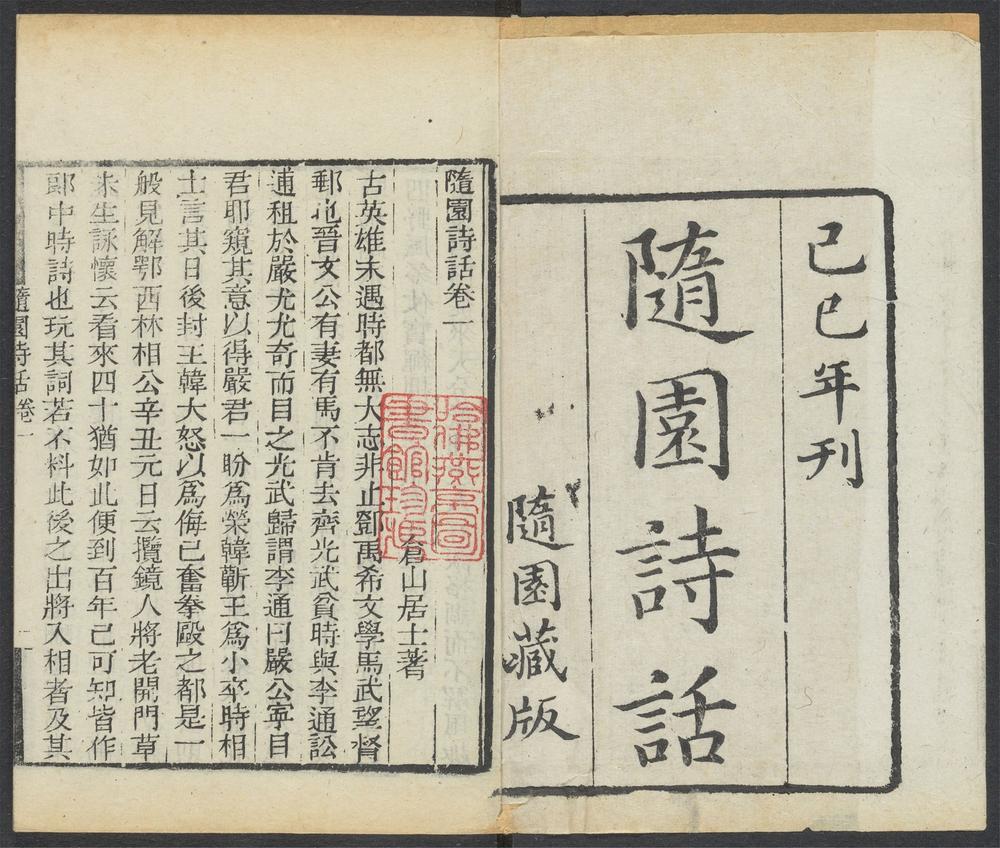 己巳年刊
隨園詩話
隨園藏版
隨園詩話卷一
倉山居士著
古英雄未遇時都無大志非止鄧禹希文學馬武望督
郵也晉文公有妻有馬不肯去齊光武貧時與李通訟
逋租於嚴尤尤奇而目之光武歸謂李通曰嚴公寧目
君耶窺其意以得嚴君一盼為榮韓蘄王為小卒時相
士言其日後封王韓大怒以為侮己奮拳毆之都是一
般見解鄂西林相公辛丑元日云攬鏡人將老開門草
未生詠懷云看來四十猶如此便到百年已可知皆作
郎中時詩也玩其詞若不料此後之出將入相者及其
隨園詩話卷一
一
哈佛燕京圖書館珍藏